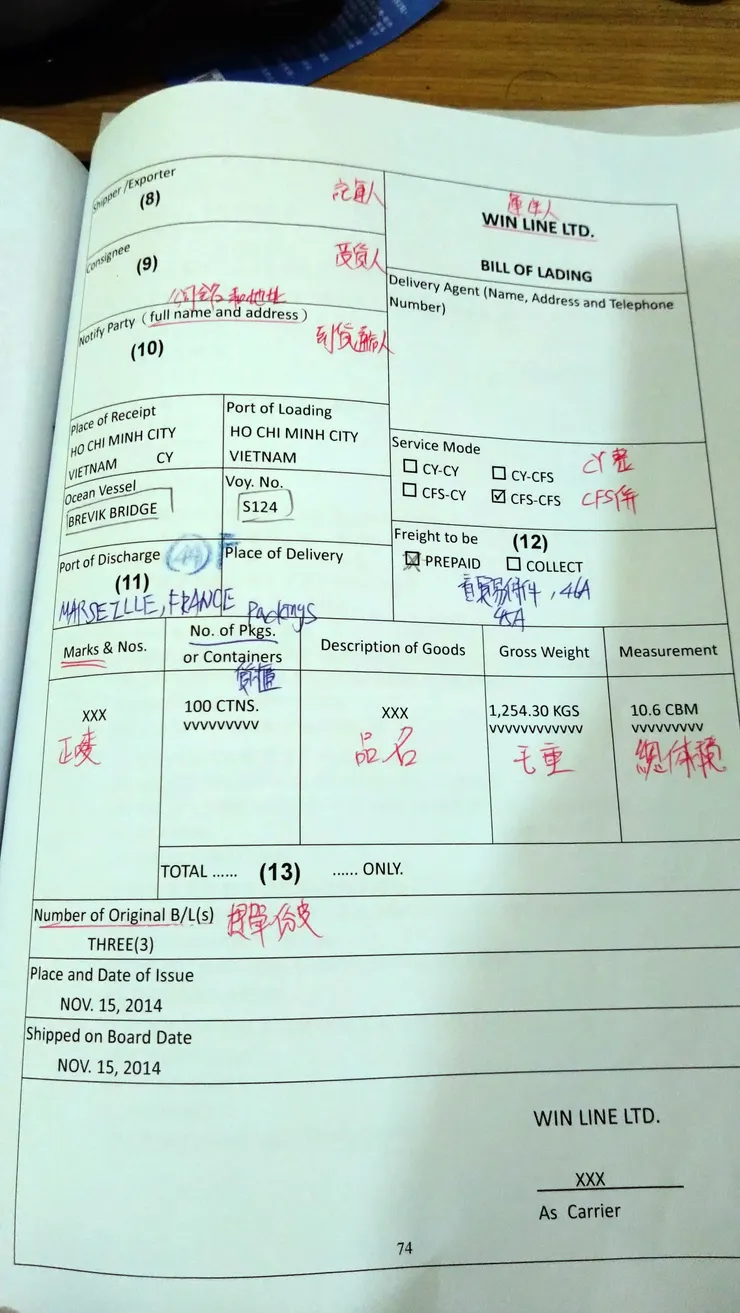 Shipper /Exporter
(8)
託運人
運送人
WIN LINE LTD.
BILL OF LADING
Consignee
(9)
受貨人
公司全名和地址
Notify Party (full name and address)
(10)
到貨通知人
Delivery Agent (Name, Address and Telephone
Number)
Place of Receipt
HO CHI MINH CITY
VIETNAM CY
Port of Loading
HO CHI MINH CITY
VIETNAM
Service Mode
☐ CY-CY ☐ CY-CFS CY整
☐ CFS-CY ☑ CFS-CFS CFS併
Ocean Vessel
BREVIK BRIDGE
Voy. No.
S124
Freight to be (12)
☒ PREPAID ☐ COLLECT
貿易條件, 46A
45A
Port of Discharge 44 F
(11)
MARSEILLE, FRANCE
Place of Delivery
Packings
Marks & Nos.
No. of Pkgs.
or Containers
貨櫃
Description of Goods
Gross Weight
Measurement
XXX
正嘜
100 CTNS.
vvvvvvvvv
XXX
品名
1,254.30 KGS
vvvvvvvvvvvv
毛重
10.6 CBM
vvvvvvvvv
總体積
TOTAL ...... (13) ...... ONLY.
Number of Original B/L(s) 提單份数
THREE(3)
Place and Date of Issue
NOV. 15, 2014
Shipped on Board Date
NOV. 15, 2014
WIN LINE LTD.
XXX
As Carrier
74